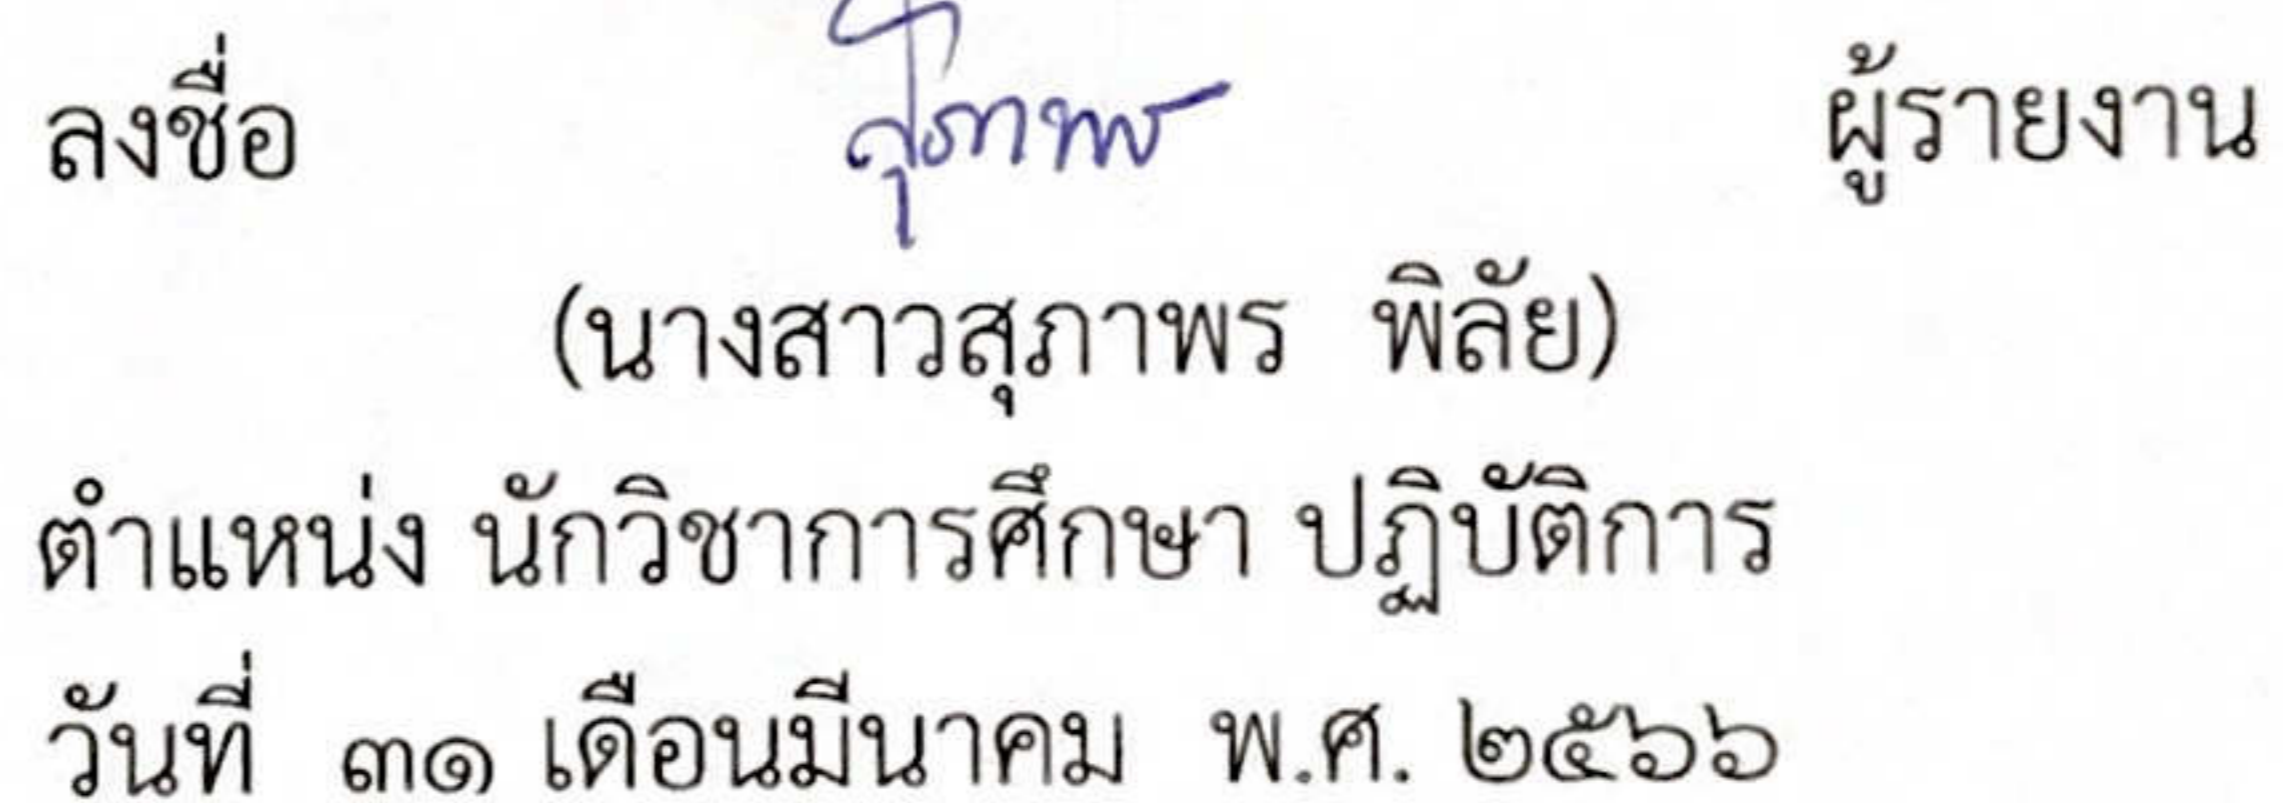 ลงชื่อ สุภาพร ผู้รายงาน
(นางสาวสุภาพร พิลัย)
ตำแหน่ง นักวิชาการศึกษา ปฏิบัติการ
วันที่ ๓๑ เดือนมีนาคม พ.ศ. ๒๕๖๖